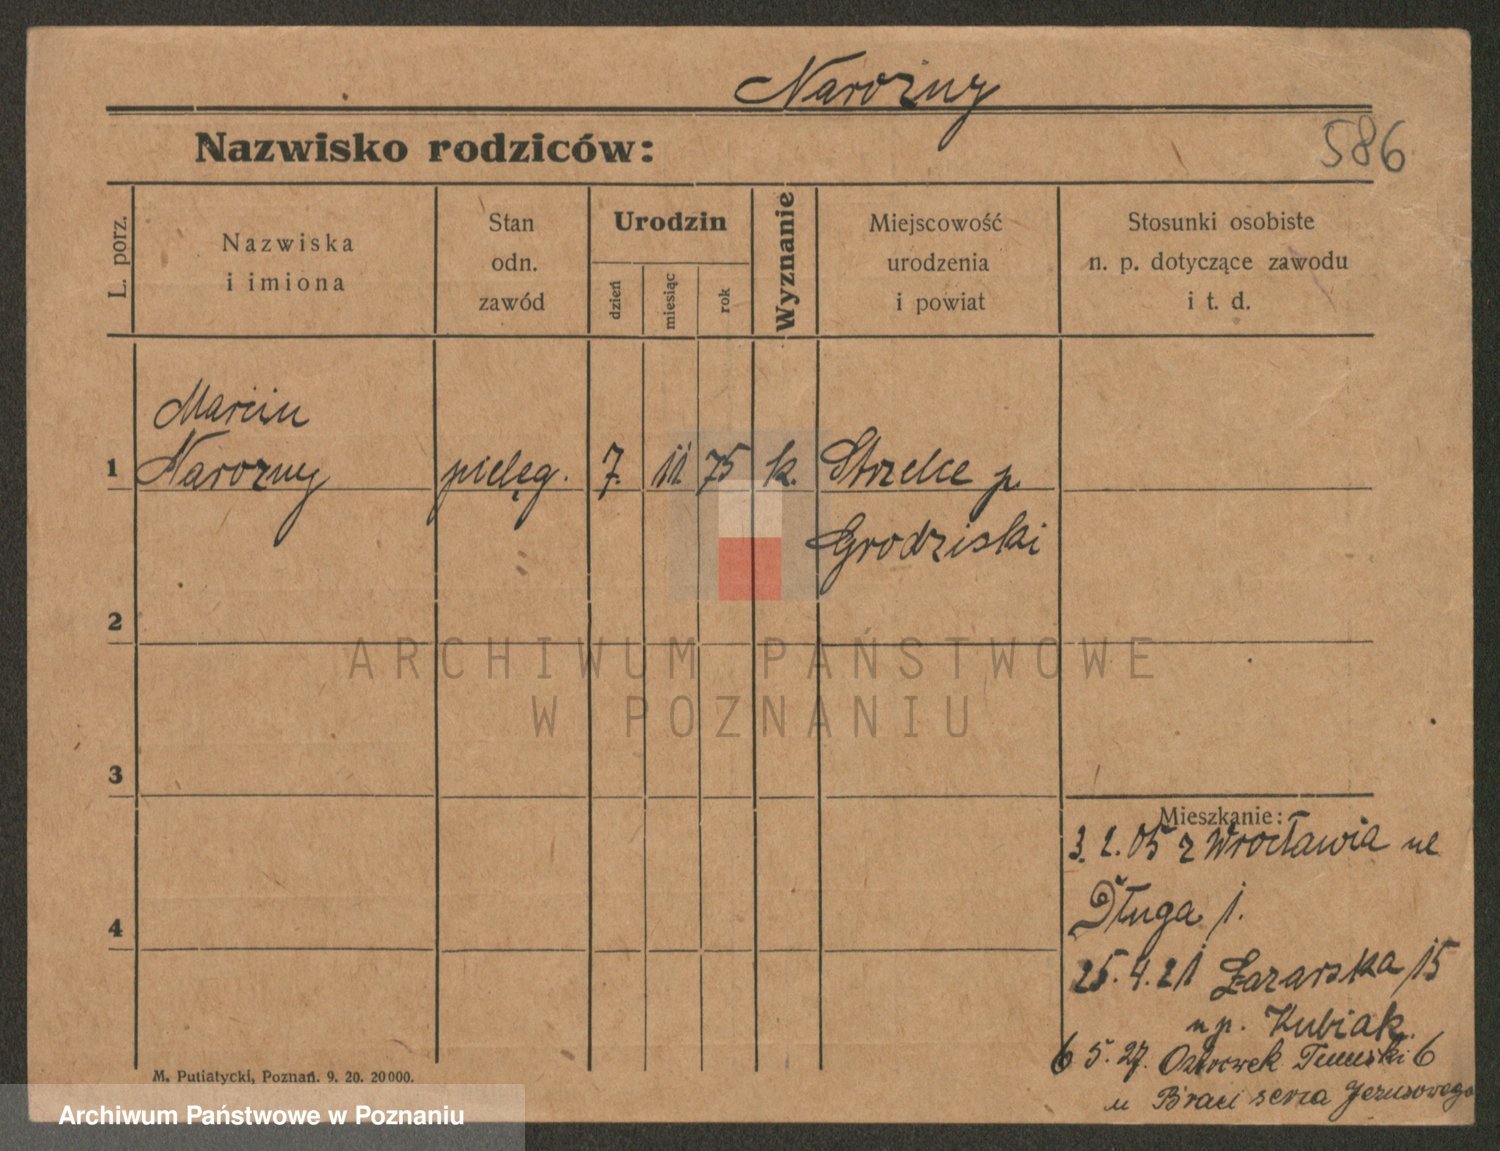 Narozny
Nazwisko rodziców:
586
L. porz.
Nazwiska
i imiona
Stan
odn.
zawód
Urodzin
dzień
miesiąc
rok
Wyznanie
Miejscowość
urodzenia
i powiat
Stosunki osobiste
n. p. dotyczące zawodu
i t. d.
Marcin
1 Narozny pielęg. 7. 11. 75 k. Strzelce p.
Grodziski
2
ARCHIWUM PAŃSTWOWE
W POZNANIU
3
Mieszkanie:
3. 2. 05 z Wrocławia
4
Długa 1.
25. 4. 21 Łazarska 15
np. Kubiak
6 5. 27. Tumski 6
u Braci serca Jezusowego
M. Putiatycki, Poznań. 9. 20. 20000.
Archiwum Państwowe w Poznaniu